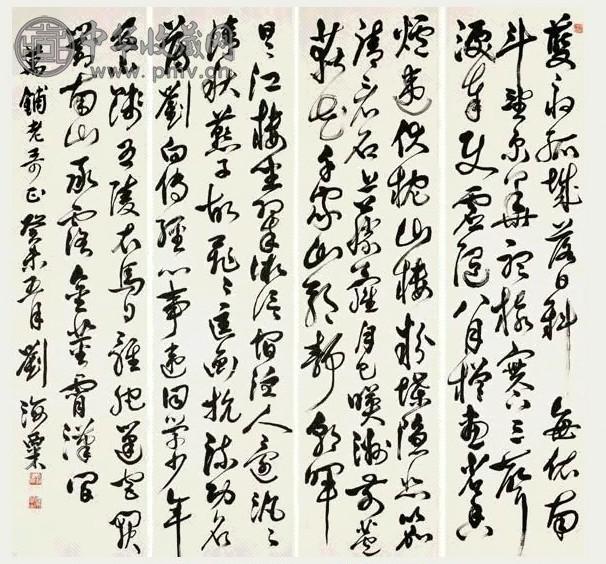 夔府孤城落日斜每依南
斗望京華聽猿實下三聲
淚奉使虛隨八月槎畫省香
爐違伏枕山樓粉堞隱悲笳
請看石上藤蘿月已映洲前蘆
荻花千家山郭靜朝暉
日日江樓坐翠微信宿漁人還汎汎
清秋燕子故飛飛匡衡抗疏功名
薄劉向傳經心事違同學少年
多不賤五陵衣馬自輕肥蓬萊宮闕
對南山承露金莖霄漢間
鋪老哥正癸未五月劉海粟
中华收藏网
www.pmv.cn